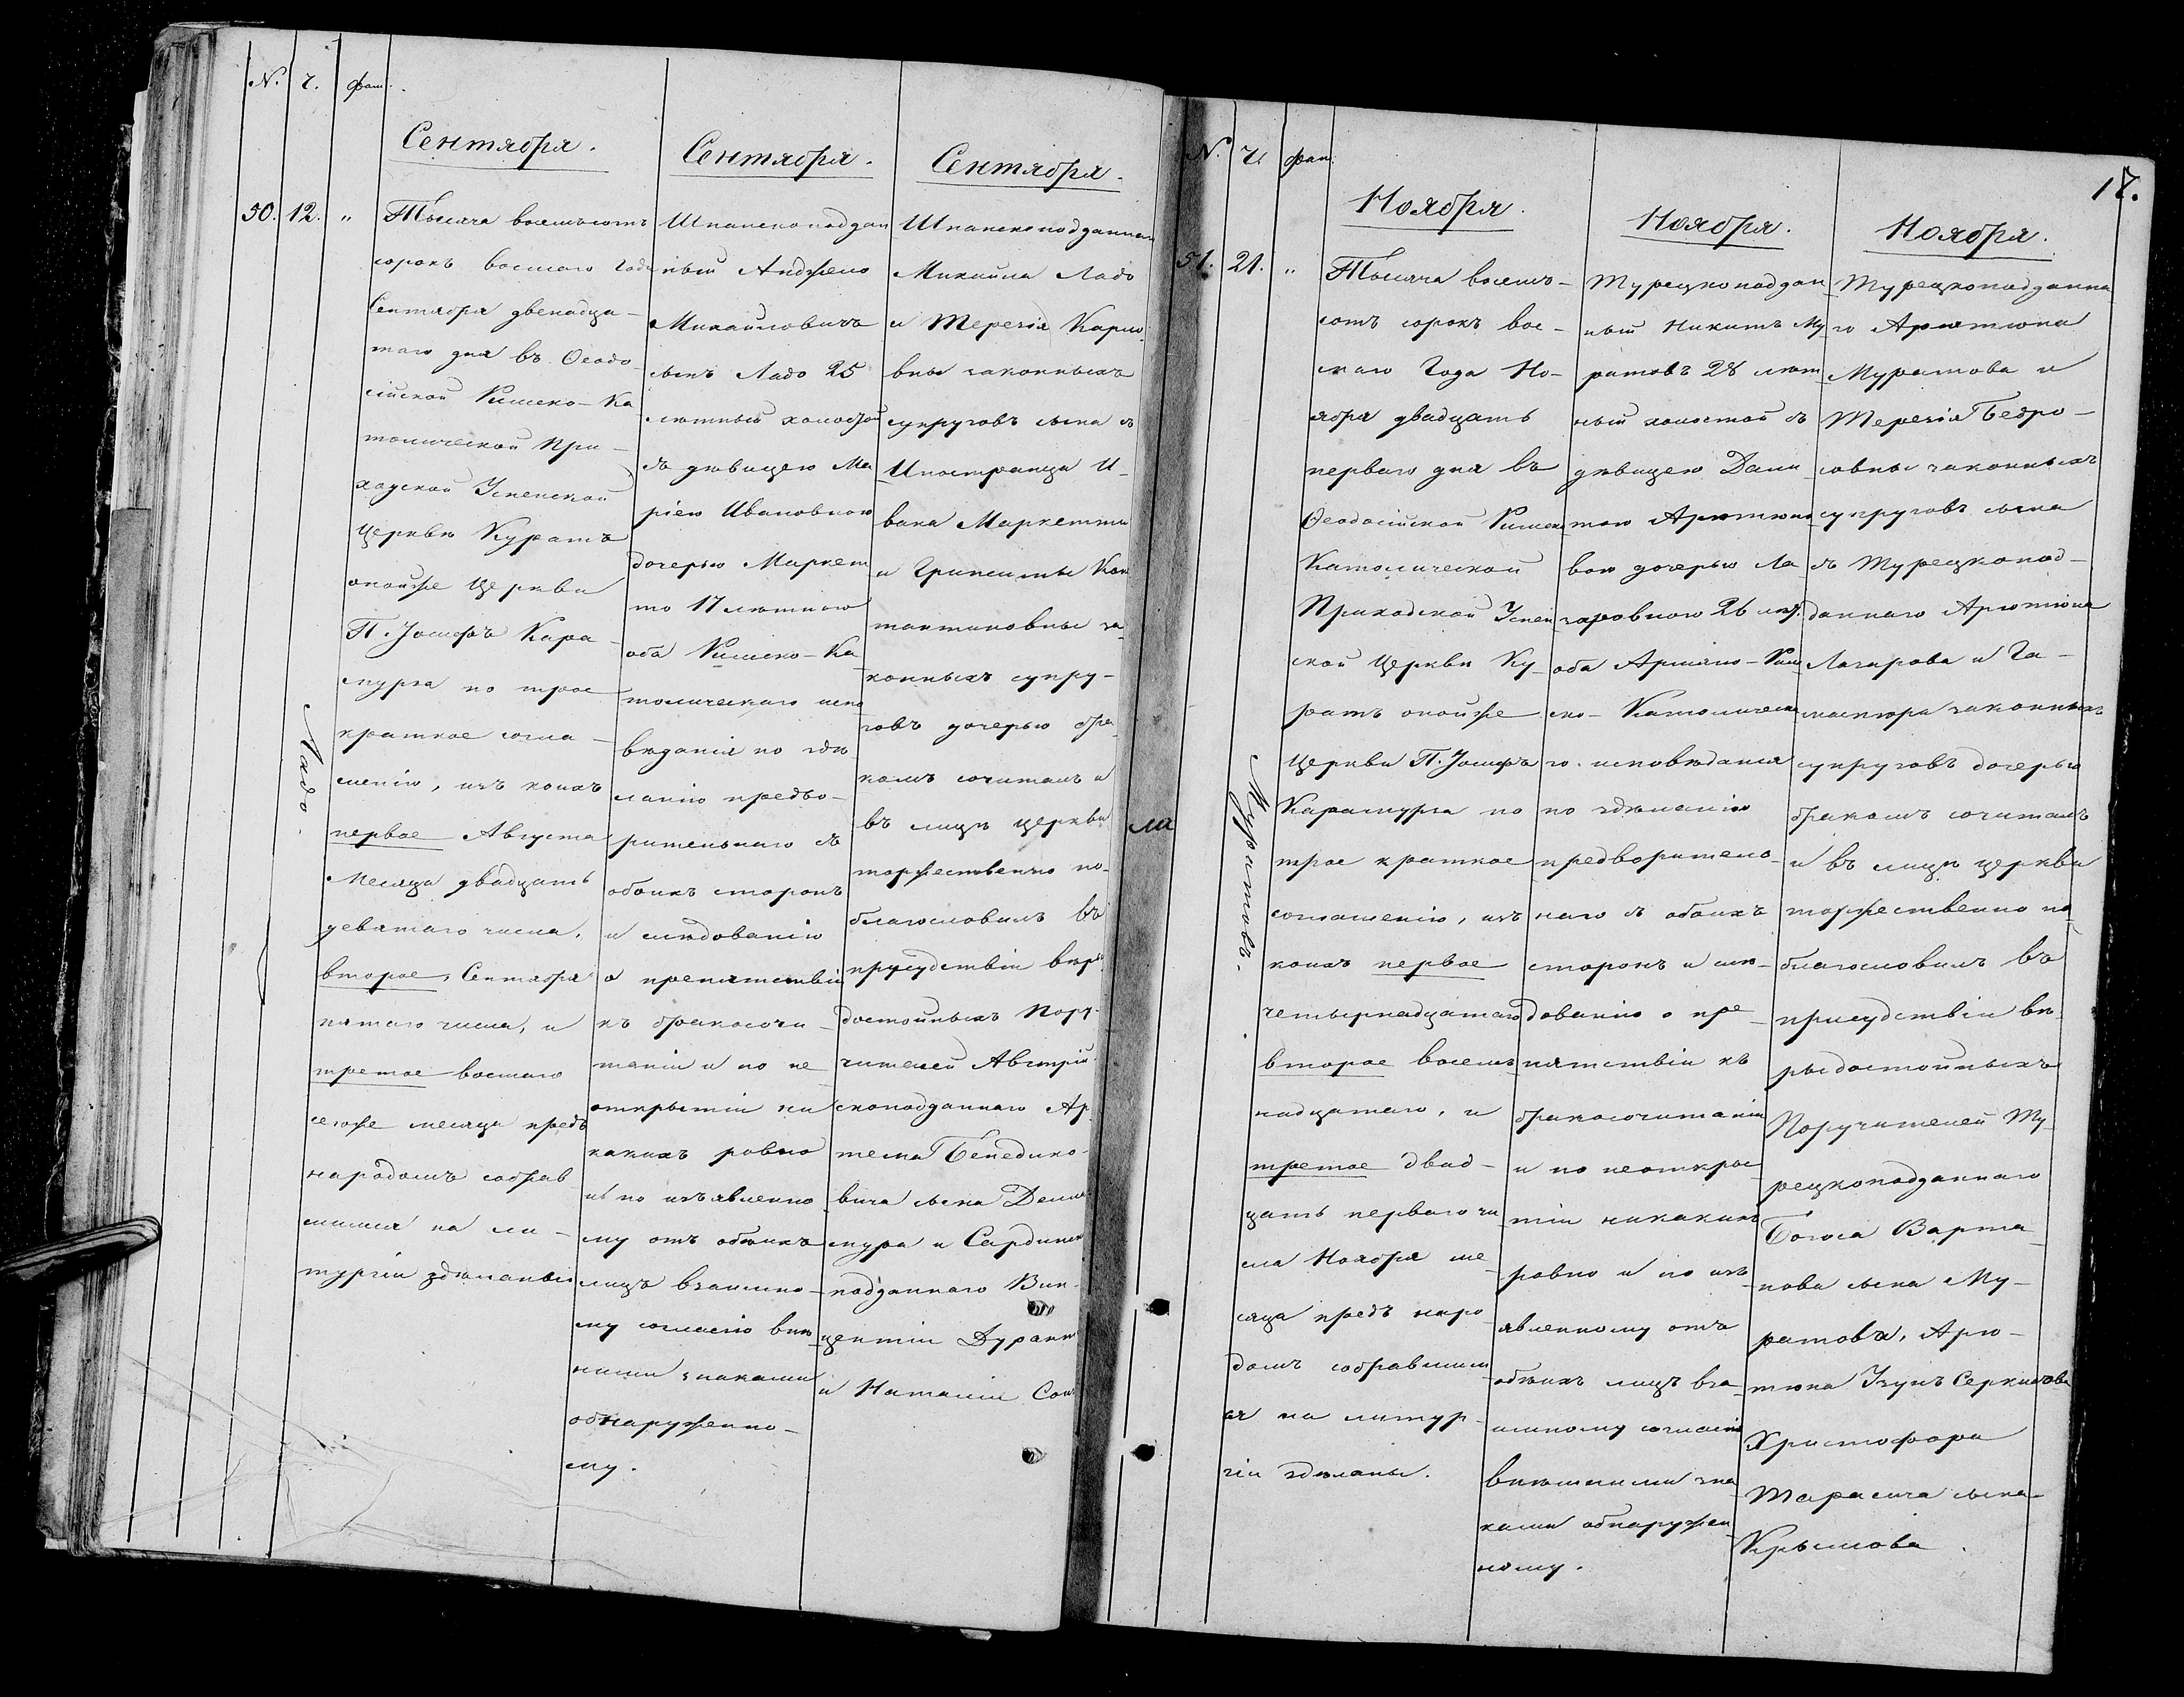 N. ч. фам.
Сентября.
50. 12. "
Тысяча восемьсотъ
сорокъ восмаго Года
Сентября двенадца-
таго дня въ Ѳеодо
сійской Римско-Ка
толической При-
ходской Успенской
Церкви Куратъ
онойже Церкви
П. Іосифъ Кара-
мурза по трое
кратное согла-
шенію, изъ коихъ
первое Августа
месяца двадцать
девятаго числа,
второе, Сентября
пятаго числа, и
третое восмаго
тогоже месяца предъ
народомъ собрав
шимся на ли-
тургіи здѣланы
Ладо.
Сентября.
Шпанскоподдан
ный Анджело
Михайловичъ
сынъ Ладо 25
лѣтный холостой
съ дѣвицею Ма
ріею Ивановною
дочерью Маркет
то 17 лѣтною
оба Римско-Ка
толическаго испо
вѣданія по здѣ
ланію предво-
рительнаго съ
обоихъ сторонъ
и слѣдованію
о препятствіи
къ бракосочи-
таніи и по не
открытіи ни
какихъ ровно
и по изъявленно
му отъ обѣихъ
лицъ взаимно-
му согласію внѣ
шними знаками
обнаруженно-
му.
Сентября.
Шпанскоподданнаго
Михайла Ладо
и Терезіи Карло
вны законныхъ
супруговъ сына съ
Иностранца И-
вана Маркетти
и Грипсимы Кон
тантиновны за
конныхъ супру-
говъ дочерью бра
комъ сочиталъ и
въ лицѣ церкви
торжественно по-
благословилъ въ
присудствіи вѣро
достойныхъ Пору-
чителей Австрій
скоподданнаго Ар
тема Бенедикто-
вича сына
и Сардинско
подданнаго Вин-
центіи Дуранте
и Наталіи
ла
N. ч. фам.
17.
Ноября.
51. 21. "
Тысяча восемь-
сотъ сорокъ вос-
маго Года Но-
ября двадцать
перваго дня въ
Ѳеодосійской Римско
Католической
Приходской Успен
ской Церкви Ку-
ратъ онойже
Церкви П. Іосифъ
Карамурза по
трое кратное
соглашенію, изъ
коихъ первое
четырнадцатаго
второе восемь
надцатаго, и
третое двад-
цать перваго чи
сла Ноября ме-
сяца предъ наро
домъ собравшим
ся на литур-
гіи здѣланы.
Муратовъ.
Ноября.
Турецкоподдан
ный Никитъ Му
ратовъ 28 лѣт
ный холостой съ
дѣвицею Дани
тою Арютино
вою дочерью Ла-
заровною 26 лѣт.
оба Армяно-Рим
ско-Католическа
го исповѣданія
по здѣланію
предворитель-
наго съ обоихъ
сторонъ и слѣ-
дованію о пре-
пятствіи къ
бракосочитаніи
и по неоткры
тіи никакихъ
ровно и по изъ
явленному отъ
обѣихъ лицъ вза-
имному согласію
внѣшними зна
ками обнаружен
ному.
Ноября.
Турецкоподданна
го Арютюна
Муратова и
Терезіи Бедро-
совны законныхъ
супруговъ сына
съ Турецкопод-
даннаго Арютюна
Лазарова и Га-
законныхъ
супруговъ дочерью
бракомъ сочиталъ
и въ лицѣ церкви
торжественно по
благословилъ въ
присудствіи вѣ
родостойныхъ
Поручителей Ту
рецкоподданнаго
Богоса Варта-
нова сына Му-
ратова, Арю-
тюна Узунъ Серкизова
Христофора
сына
Крымова.